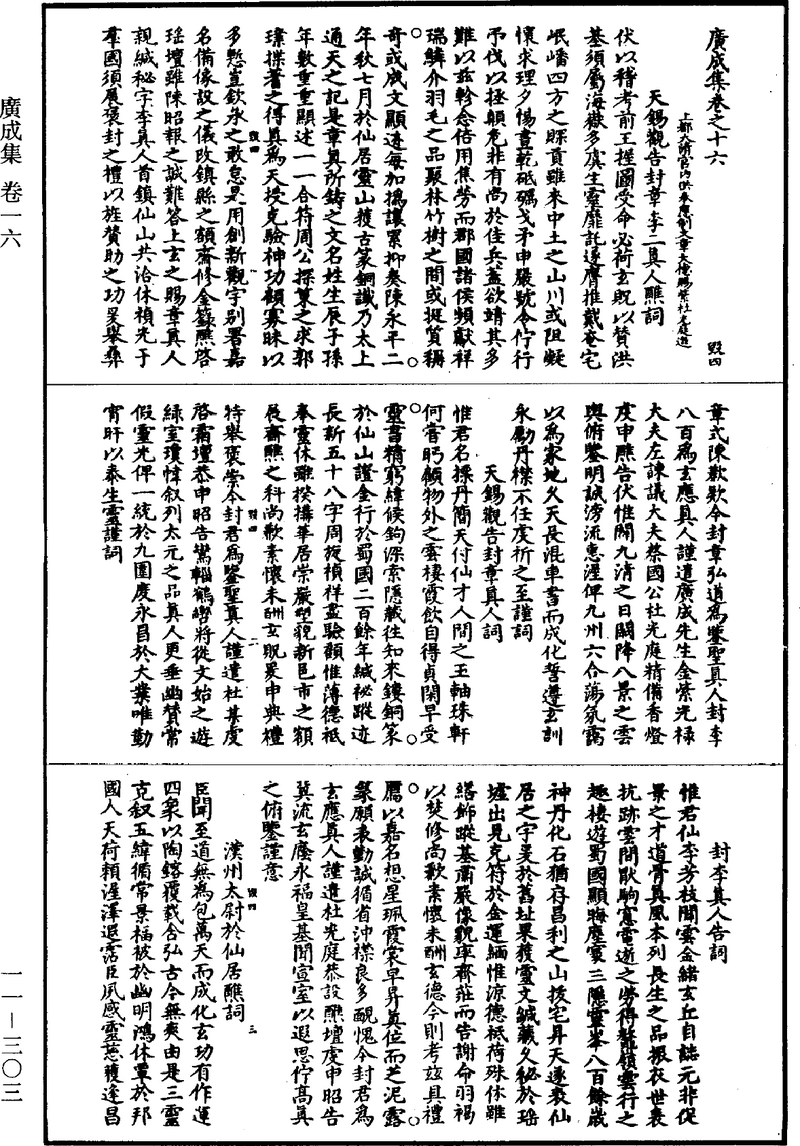 廣成集卷之十六
毀四
上都太清宮內供奉應制文章大德賜紫杜光庭造
天錫觀告封章李二真人醮詞
伏以稽考前王握圖受命必荷玄貺以贊洪
基須屬海嶽多虞生靈靡託遂膺推戴奄宅
岷嶓四方之賝貢雖來中土之山川或阻凝
懷求理夕惕晝乾砥礪戈矛申嚴號令佇行
弔伐以拯顛危非有尚於佳兵蓋欲靖其多
難以茲軫念倍用焦勞而郡國諸侯頻獻祥
瑞鱗介羽毛之品聚林竹樹之間或挺質稱
奇或成文顯迹每加撝讓累抑奏陳永平二
年秋七月於仙居靈山獲古篆銅讖乃太上
通天之記是章真所鑄之文名姓生辰子孫
年數重重顯述一一合符周公探策之求郭
璞揲蓍之得真為天授克驗神功顧寡昧以
多慙豈欽承之敢怠是用創新觀宇別署嘉
名備像設之儀改鎮縣之額齋修金籙醮啓
瑤壇雖陳昭報之誠難答上玄之賜章真人
親緘秘字李真人首鎮仙山共洽休禎光于
羣國須展襃封之禮以旌贊助之功爰舉彝
章式陳歉欵今封章弘道為鑒聖真人封李
八百為玄應真人謹遣廣成先生金紫光祿
大夫左諫議大夫蔡國公杜光庭精備香燈
虔申醮告伏惟開九清之日闢降八景之雲
輿俯鑒明誠滂流惠渥俾九州六合蕩氛靄
以為家地久天長混車書而成化誓遵玄訓
永勵丹襟不任虔祈之至謹詞
天錫觀告封章真人詞
惟君名探丹簡天付仙才人間之玉軸珠軒
何嘗眄顧物外之雲棲霞飲自得貞閑早受
靈書精窮緯候鉤深索隱藏往知來鏤銅篆
於仙山證金行於蜀國二百餘年緘秘蹤迹
長新五十八字周旋禎祥盡驗顧惟薄德祗
奉靈休雖揆攝華居崇嚴塑貌新邑市之額
展齋醮之科尚歉素懷未酬玄貺爰申典禮
特舉褒崇今封君為鑒聖真人謹遣杜某虔
啓霜壇恭申昭告鸞輜鶴轡將從文始之遊
綠室瓊幃叙列太元之品真人更垂幽贊常
假靈光俾一統於九圍慶永昌於大業唯勤
宵旰以奉生靈謹詞
封李真人告詞
惟君仙李芳枝關雲金緒玄丘自誌元非促
景之才道骨真風本列長生之品振衣世表
抗跡雲間獸駒憲電逝之勞得龍領雲行之
趣棲遊蜀國顯晦塵寰三隱靈峯八百餘歲
神丹化石猶存昌利之山拔宅昇天遂表仙
居之宇爰於舊址果獲靈文緘藏久秘於瑤
墟出見克符於金運緬惟涼德祗荷殊休雖
繕飾蹤基肅嚴像貌率齋莊而告謝命羽褐
以焚修尚歉素懷未酬玄德今則考茲具禮
薦以嘉名想星珮霞裳早昇真位而芝泥露
篆願表勤誠循省沖襟良多靦愧今封君為
玄應真人謹遣杜光庭恭設醮壇虔申昭告
冀流玄廕永福皇基聞宣室以遐思佇高真
之俯鑒謹意
漢州太尉於仙居醮詞
臣聞至道無為包萬天而成化玄功有作運
四象以陶鎔覆載含弘古今無爽由是三靈
克叙五緯循常景福被於幽明鴻休覃於邦
國人天荷賴渥澤遐霑臣夙感靈慈獲逢昌
廣成集 卷一六
一一—三〇三